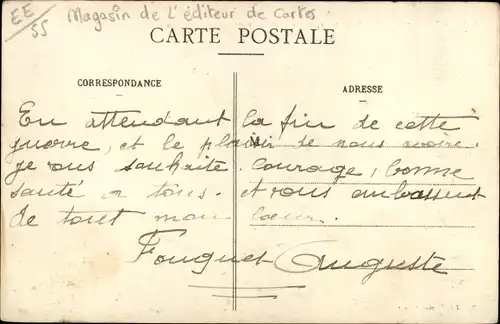 EE
55
Magasin de L'éditeur de Cartes
CARTE POSTALE
CORRESPONDANCE
ADRESSE
En attendant la fin de cette
guerre, et le plaisir de nous revoir.
je vous souhaite courage, bonne
santé a tous. et vous embassent
de tout mon cœur.
Fouquet Auguste